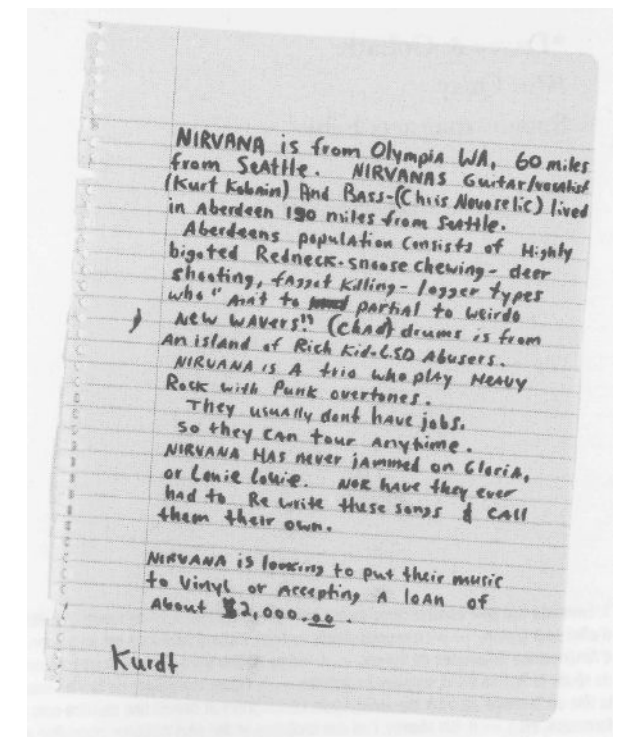 NIRVANA is from Olympia WA, 60 miles
from SeAttle. NIRVANAS Guitar/vocalist
(Kurt Kobain) And Bass-(Chris Novoselic) lived
in Aberdeen 190 miles from Seattle.
Aberdeens population consists of Highly
bigoted Redneck-snoose chewing- deer
shooting, faggot killing- logger types
who "Ain't to partial to weirdo
New wAvers." (chad) drums is from
An island of Rich Kid-LSD Abusers.
NIRVANA is A trio who plAy HeAvy
Rock with Punk overtones.
They usually dont hAve jobs.
So they cAn tour Anytime.
NIRVANA HAs never jAmmed on GloriA,
or Louie Louie. Nor have they ever
had to Re write these songs & cAll
them their own.
NIRVANA is looking to put their music
to vinyl or Accepting A loAn of
About $2,000.00.
Kurdt